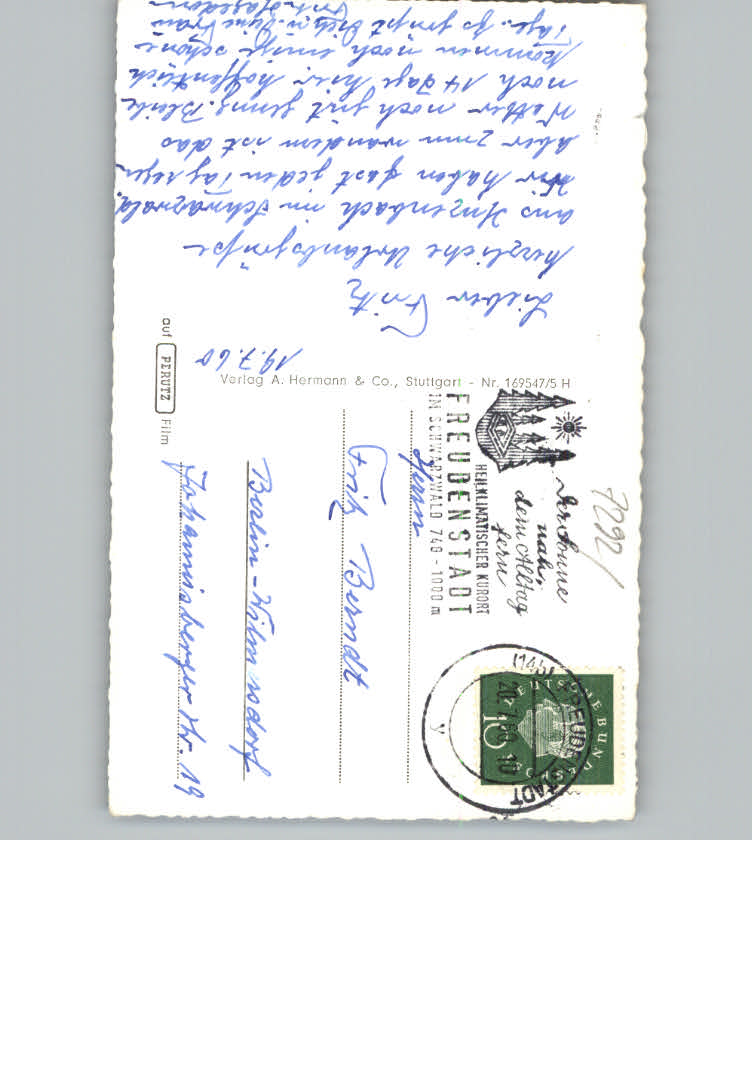 19.7.60
Lieber Fritz
Herzliche Urlaubsgrüße
aus Huzenbach im Schwarzwald.
Wir haben fast jeden Tag regen
Aber zum wandern ist das
Wetter noch gut genug. Bleibe
noch 14 Tage hier, hoffentlich
kommen noch einige schöne
Tage. Es grüßt Dich u. Deine Frau
Verlag A. Hermann & Co., Stuttgart - Nr. 169547/5 H
auf PERUTZ Film
7292/
Der Sonne
nah,
dem Alltag
fern
HEILKLIMATISCHER KURORT
FREUDENSTADT
IM SCHWARZWALD 740 - 1000 m
(14b) FREUDENSTADT
20.7.60 - 10
y
DEUTSCHE BUNDESPOST
10
Herrn
Fritz Berndt
Berlin-Wilmersdorf
Johannisberger Str. 19